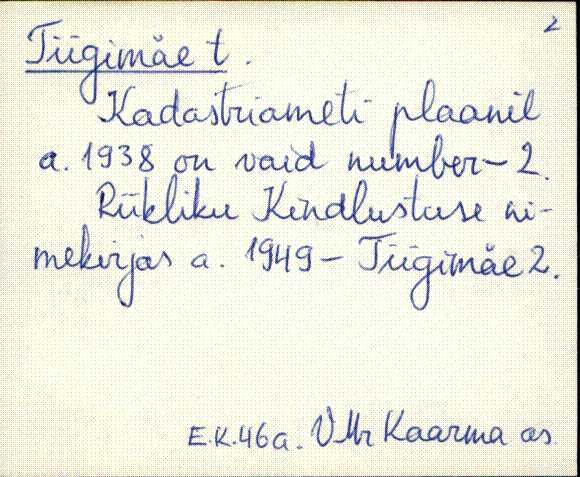 2
Tiigimäe t.
Kadastriameti plaanil
a. 1938 on vaid number – 2.
Riikliku Kindlustuse ni-
mekirjas a. 1949 – Tiigimäe 2.
E.K. 46a. VMr Kaarma as